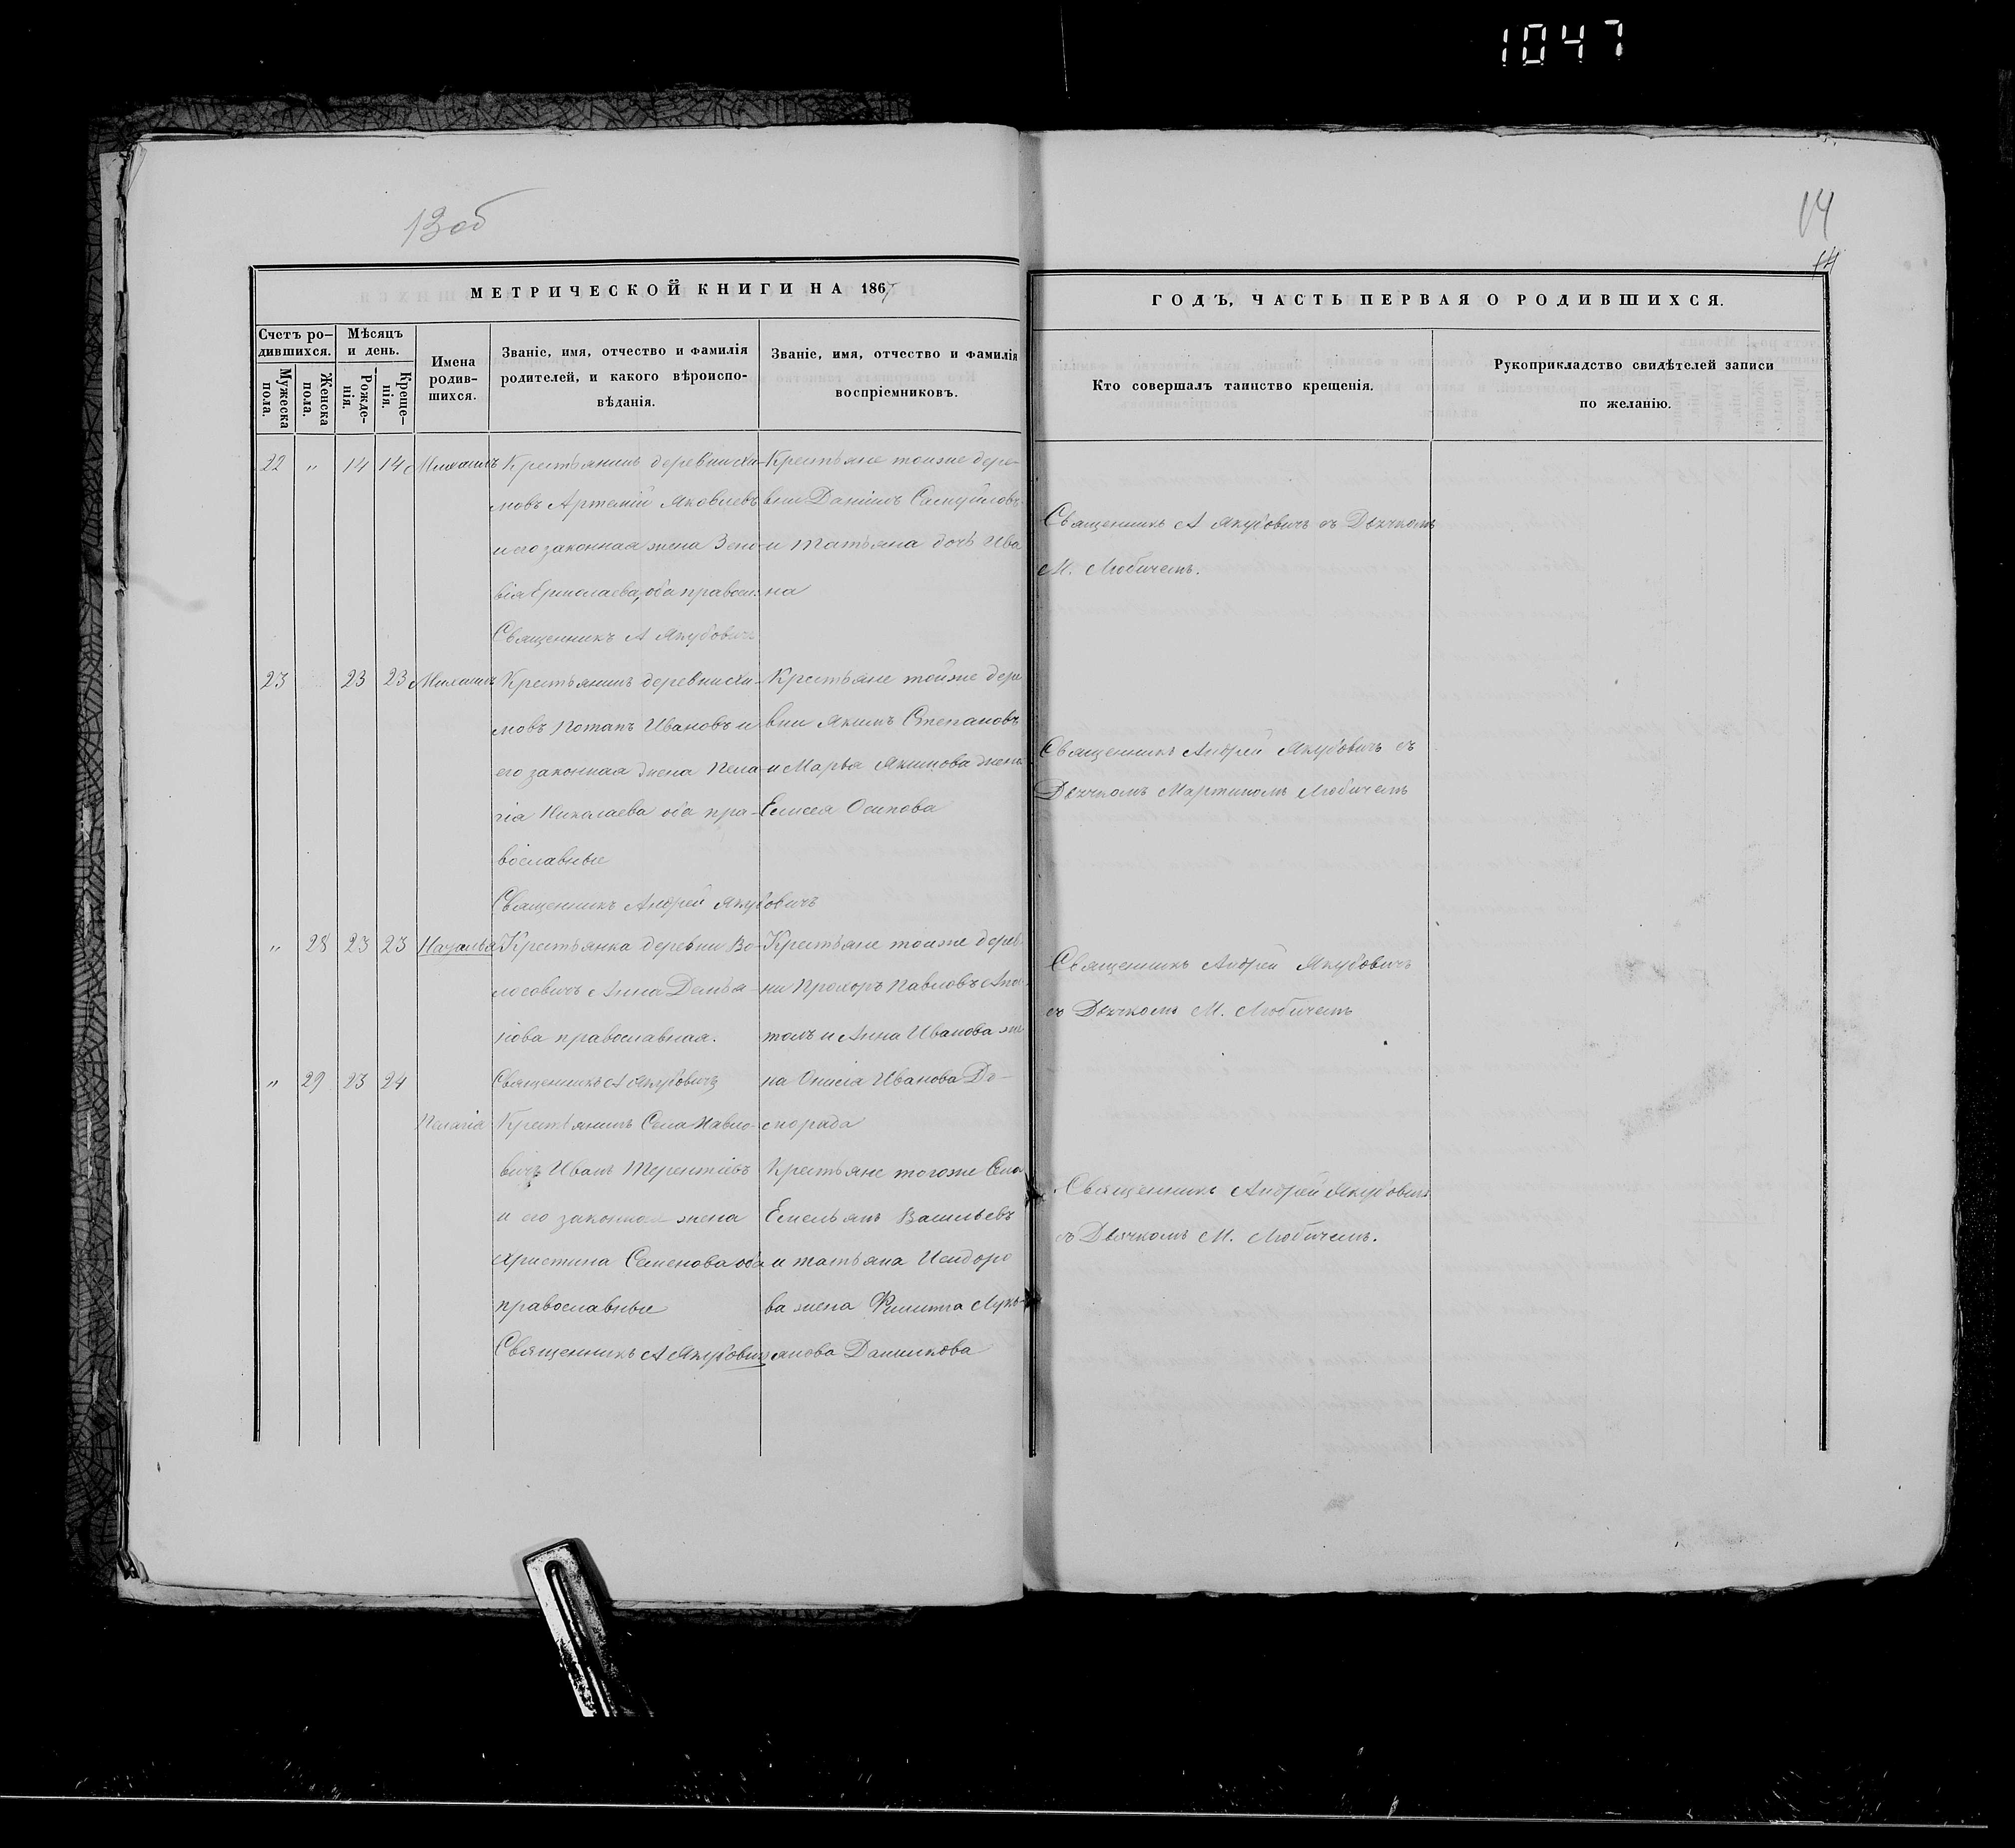 1047
13об
14
14
МЕТРИЧЕСКОЙ КНИГИ НА 1867
ГОДЪ, ЧАСТЬ ПЕРВАЯ О РОДИВШИХСЯ.
Счетъ ро-
дившихся.
Мужеска
пола.
Женска
пола.
Мѣсяцъ
и день.
Рожде-
нія.
Креще-
нія.
Имена
родив-
шихся.
Званіе, имя, отчество и фамилія
родителей, и какого вѣроиспо-
вѣданія.
Званіе, имя, отчество и фамилія
воспріемниковъ.
Кто совершалъ таинство крещенія.
Рукоприкладство свидѣтелей записи
по желанію.
22 " 14 14 Михаилъ
Крестьянинъ деревни Хи-
мовъ Артемій Яковлевъ
и его законная жена Зено-
вія Ермолаева, оба правосл:
Священникъ А Якубовичъ
Крестьяне тоиже дере-
вни Даніилъ Самуйловъ
и Татьяна дочь Ива
на
Священникъ А Якубовичъ съ Дьячкомъ
М. Любичемъ.
23 23 23 Михаилъ
Крестьянинъ деревни Хи-
мовъ Потапъ Ивановъ и
его законная жена Пела-
гія Николаева оба пра-
вославные
Священникъ Андрей Якубовичъ
Крестьяне тойже дере
вни Якимъ Степановъ
и Марья Якимова жена
Елисея Осипова
Священникъ Андрей Якубовичъ съ
Дьячкомъ Мартиномъ Любичемъ
" 28 23 23
Крестьянка деревни Во-
лосовичъ Анна Демья-
нова православная.
Священникъ А Якубовичъ
Крестьяне тоиже дерев-
ни Прохоръ Павловъ
и Анна Иванова же
на Ивана
Священникъ Андрей Якубовичъ
съ Дьячкомъ М. Любичемъ
" 29 23 24 Пелагіа
Крестьянинъ Села Павло-
вичъ Иванъ Терентіевъ
и его законная жена
Христина Семенова оба
православные
Священникъ А Якубовичъ
Крестьяне тогоже Села
Емельянъ Васильевъ
и татьяна Исидоро
ва жена Филиппа Лукь-
янова Данилкова
Священникъ Андрей Якубовичъ
съ Дьячкомъ М. Любичемъ.